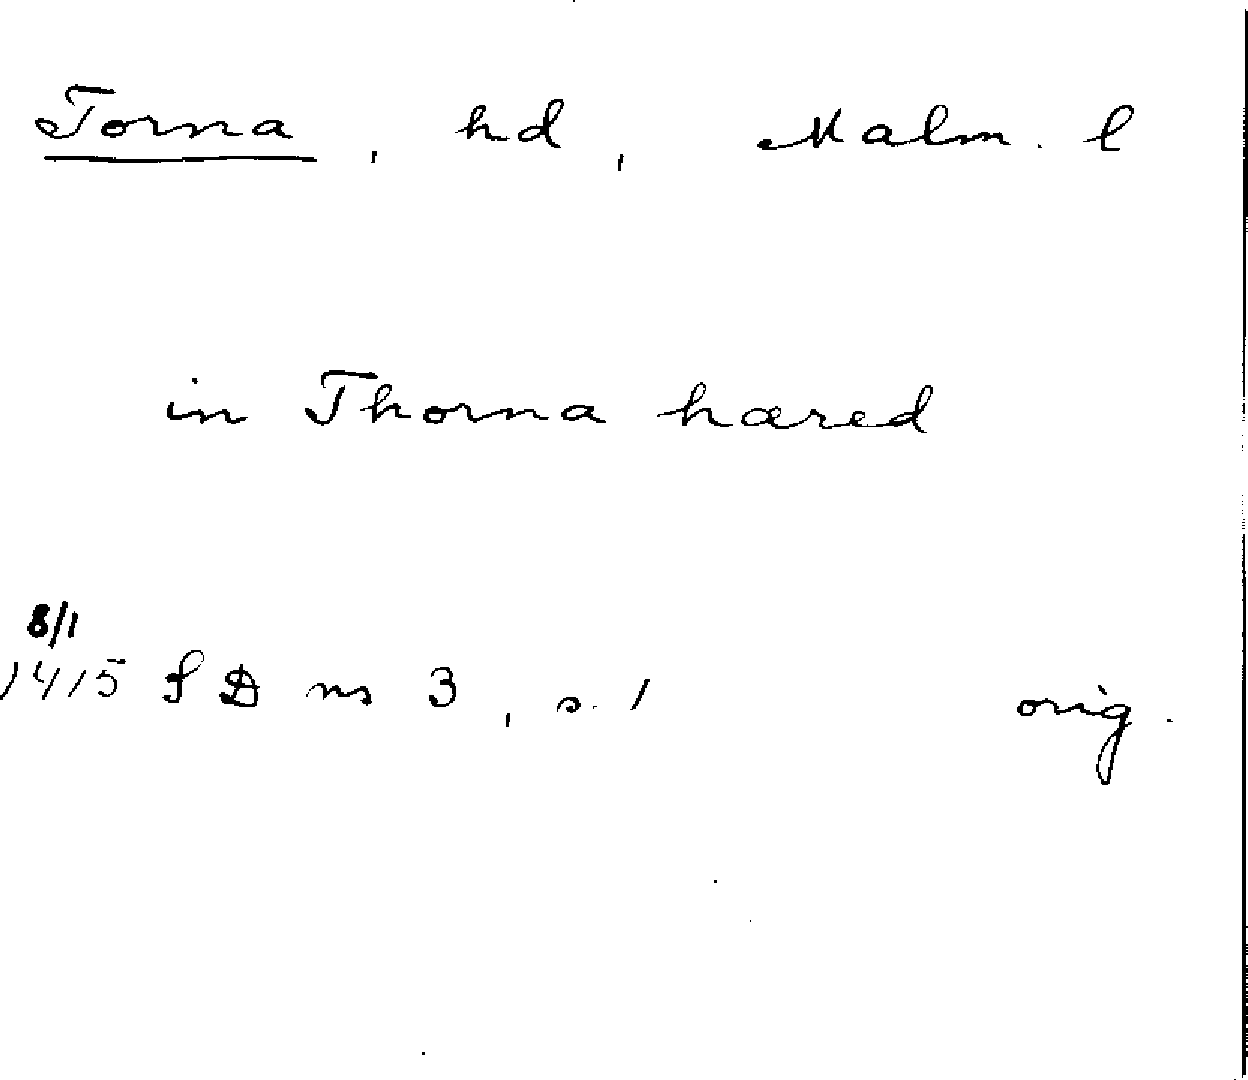 Torna, hd, Malm. l
in Thorna hæred
8/1
1415 SD ns 3, s. 1 orig.